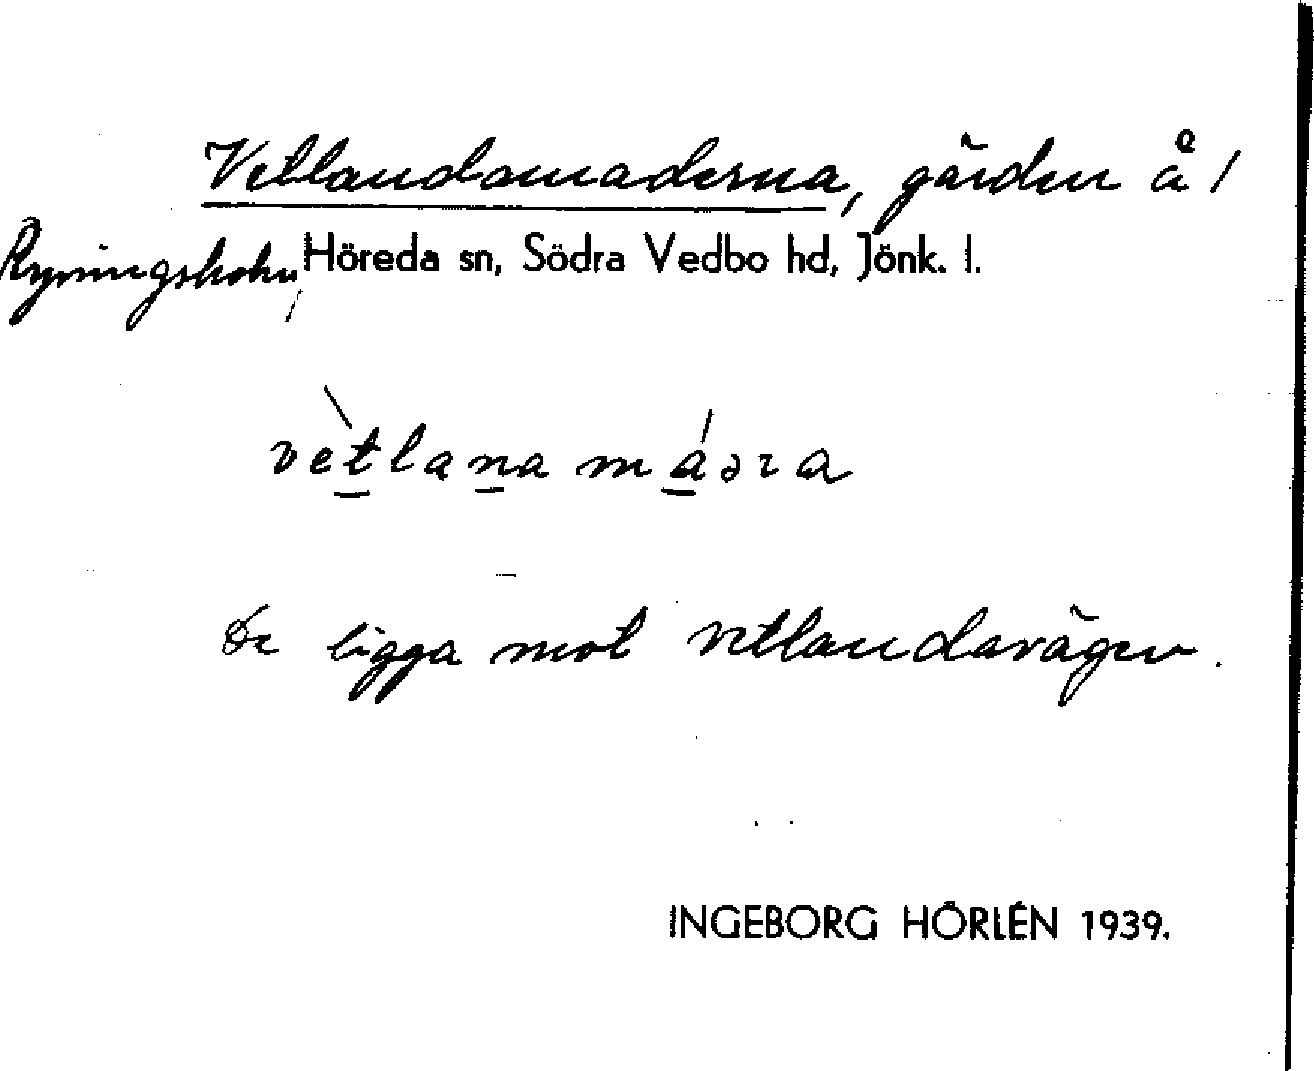 Vetlandamaderna, gärden å /
Ryningsholm, Höreda sn, Södra Vedbo hd, Jönk. l.
vètlana máɜra
De ligga mot Vetlandavägen.
INGEBORG HÖRLÉN 1939.